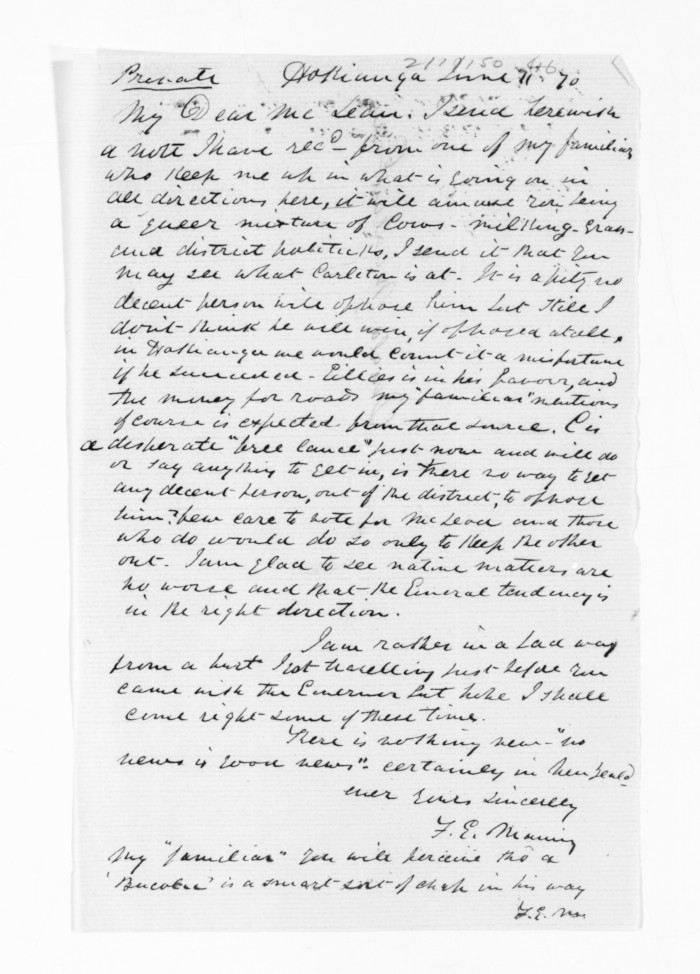 Private Hokianga June 11. 70
My Dear Mc Lean. I send herewith
a note I have recd from one of my familiars
who keep me up in what is going on in
all directions here, it will amuse you being
a queer mixture of Cows - milking - grass -
and district politicks, I send it that you
may see what Carleton is at. It is a pity no
decent person will oppose him but still I
dont think he will win, if opposed at all,
in Hokianga we would count it a misfortune
if he succeeded - Gillies is in his favour, and
the money for roads my "familiar" mentions
of course is expected from that source. C is
a desperate "free lance" just now and will do
or say anything to get in, is there no way to get
any decent person, out of the district, to oppose
him? few care to vote for McLeod and those
who do would do so only to keep the other
out. I am glad to see native matters are
no worse and that the General tendency is
in the right direction.
I am rather in a bad way
from a hurt I got travelling just before you
came with the Governor but hope I shall
come right some of these times.
There is nothing new - "no
news is good news" - certainly in New Zeald
ever yours sincerely
F. E. Maning
My "familiar" you will perceive tho a
'Bucolic' is a smart sort of chap in his way
F. E. M